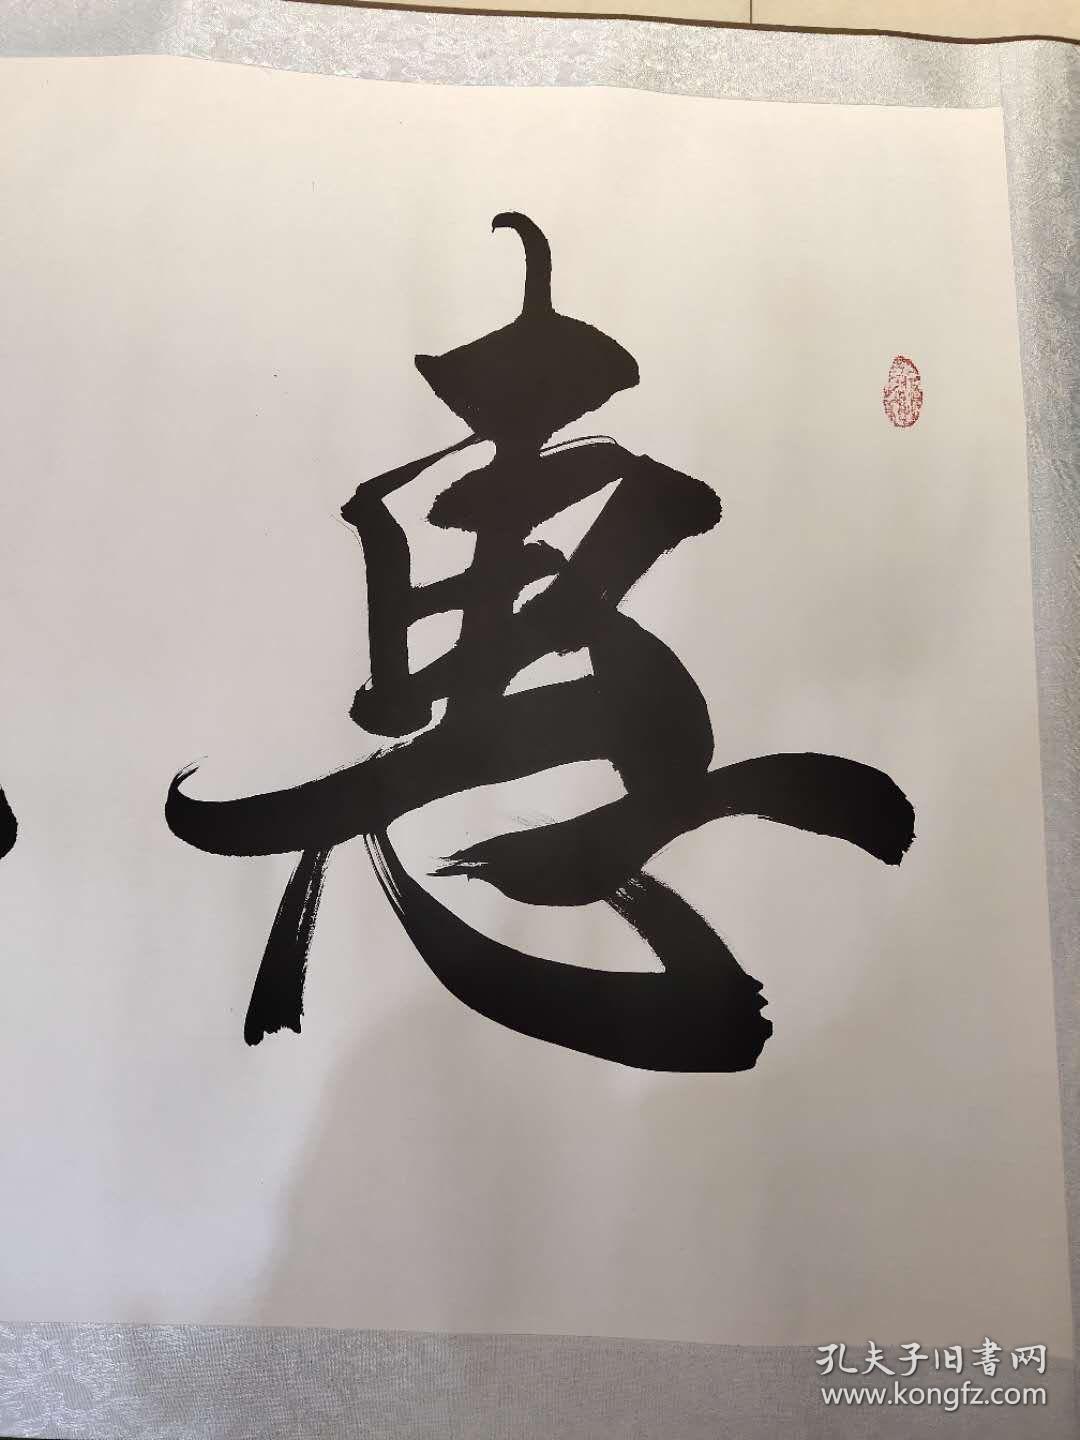 惠
孔夫子旧書网
www.kongfz.com